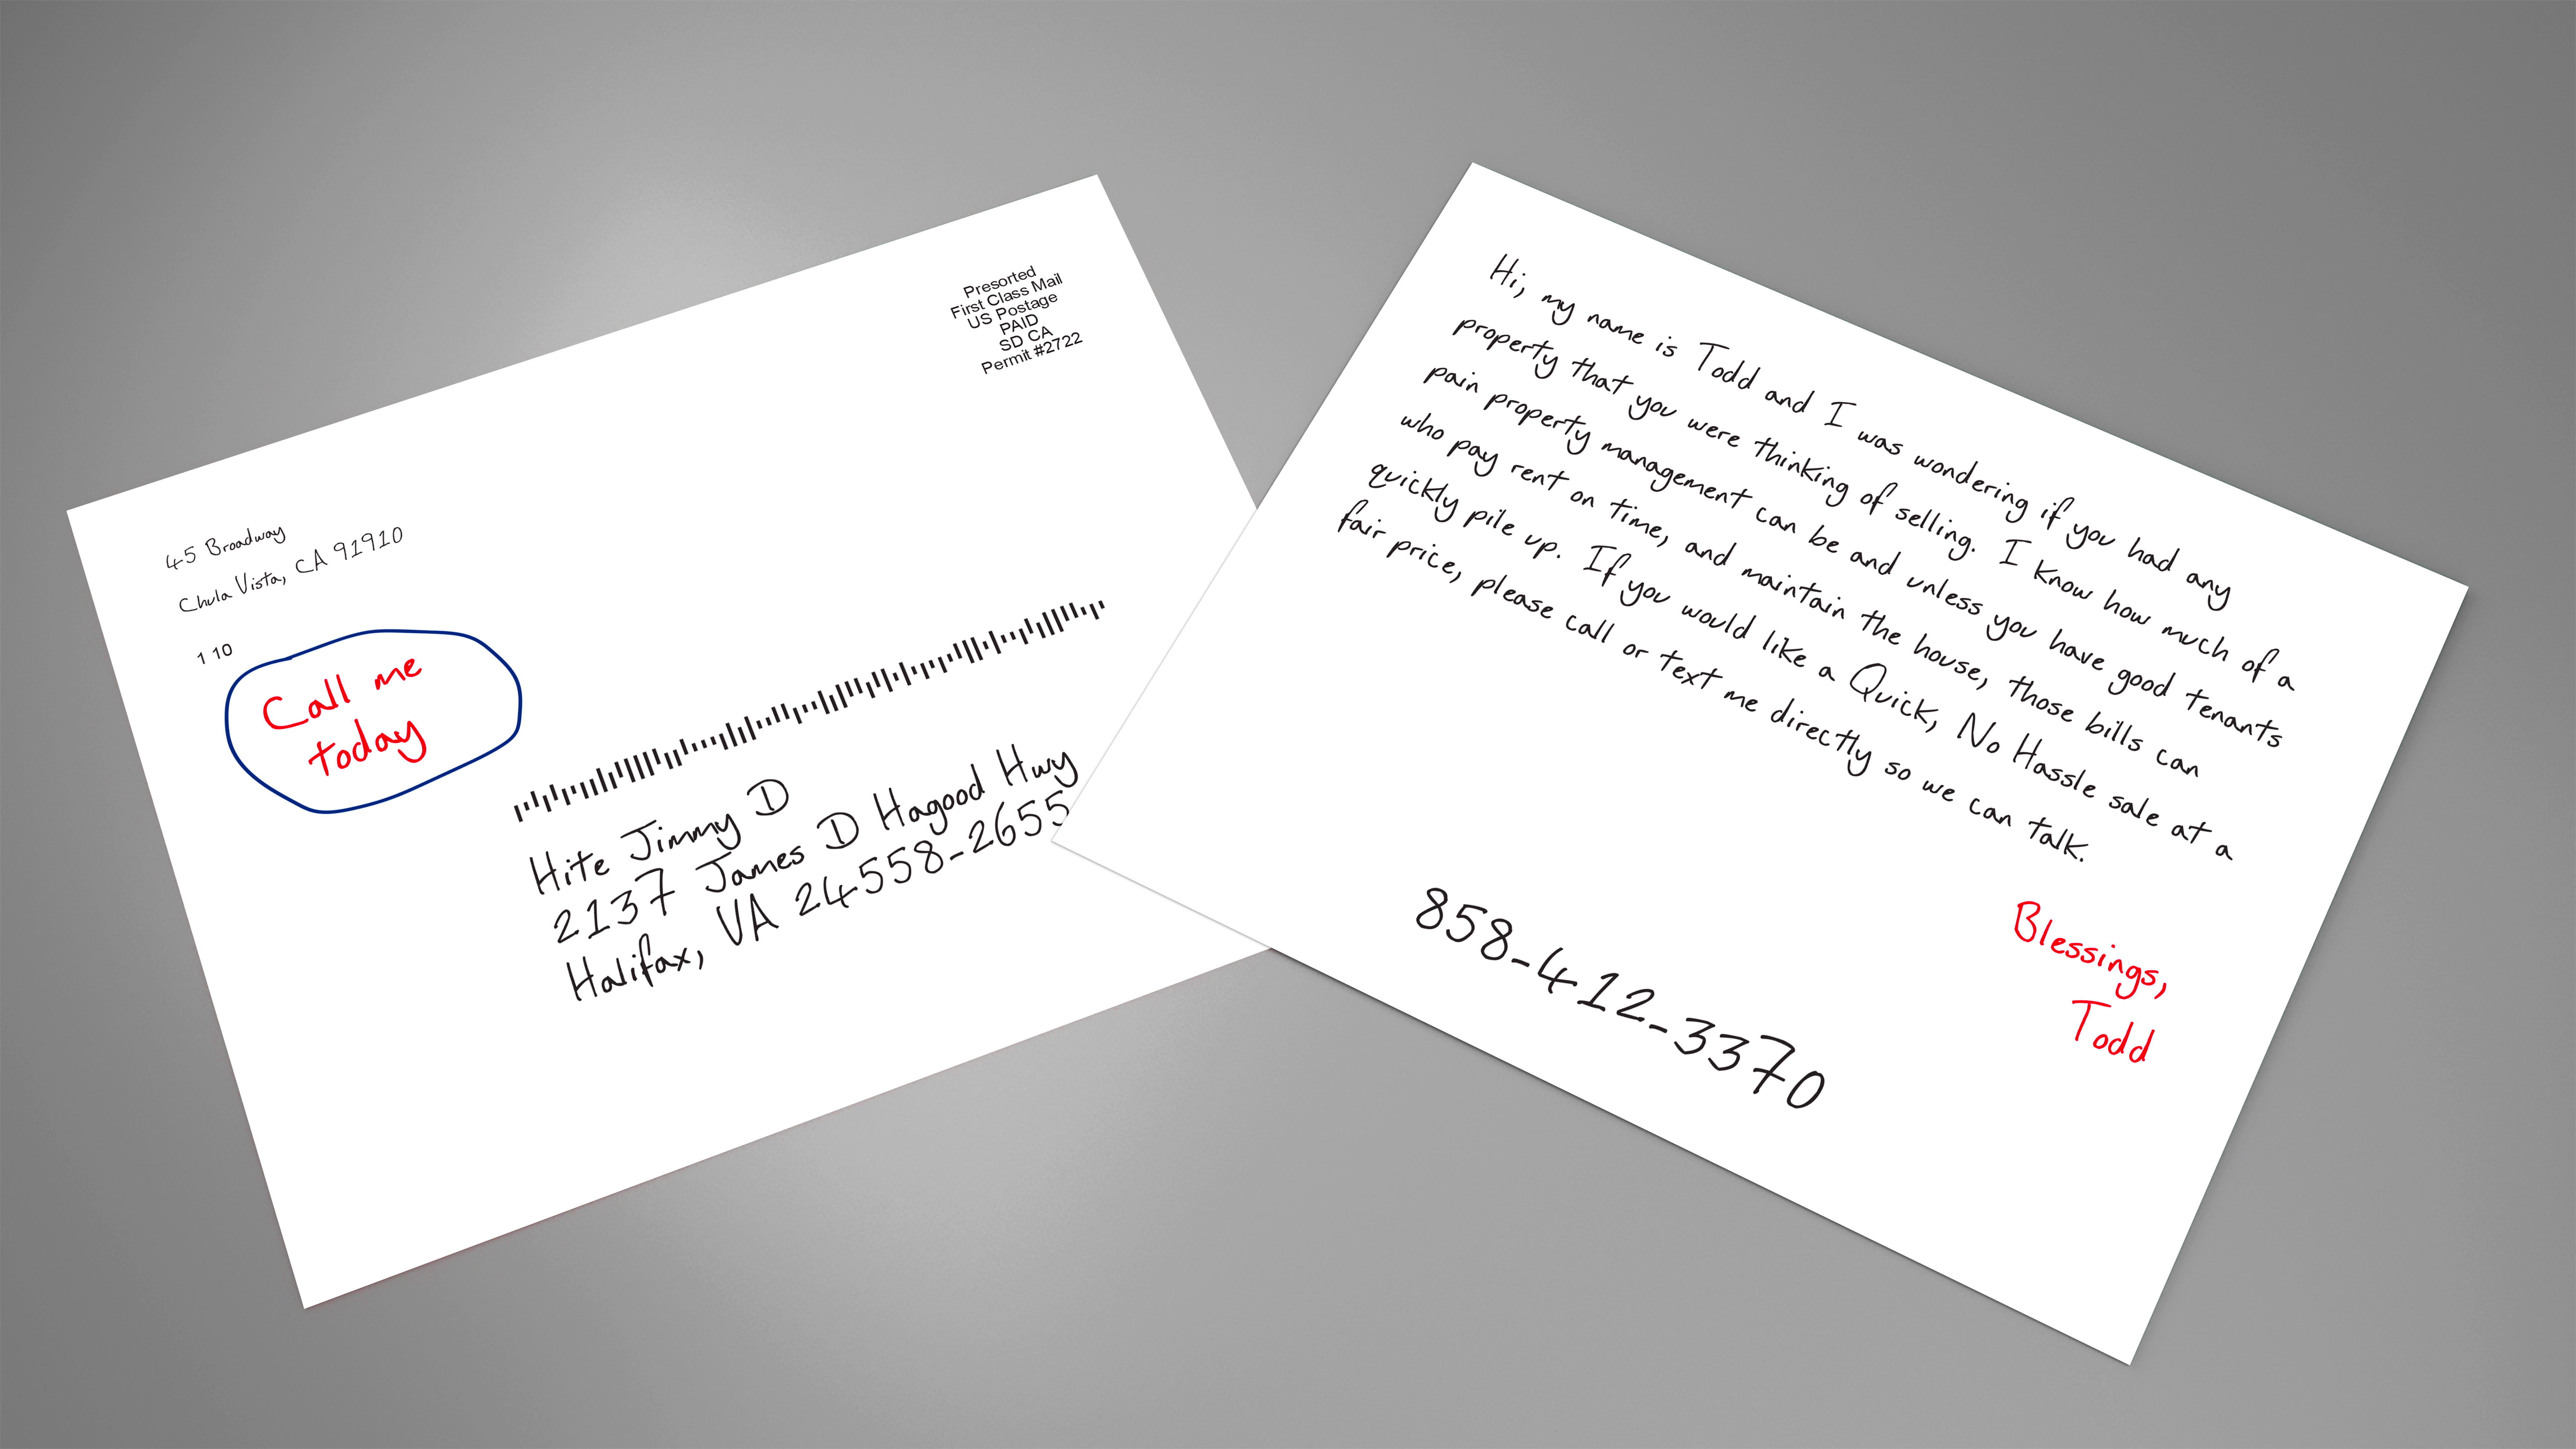 45 Broadway
Chula Vista, CA 91910
1 10
Call me
today
Presorted
First Class Mail
US Postage
PAID
SD CA
Permit #2722
Hite Jimmy D
2137 James D Hagood Hwy
Halifax, VA 24558-2655
Hi, my name is Todd and I was wondering if you had any
property that you were thinking of selling. I know how much of a
pain property management can be and unless you have good tenants
who pay rent on time, and maintain the house, those bills can
quickly pile up. If you would like a Quick, No Hassle sale at a
fair price, please call or text me directly so we can talk.
858-412-3370
Blessings,
Todd